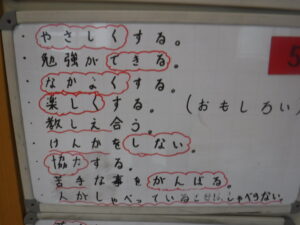 ・やさしくする。
・勉強ができる。
・なかよくする。
・楽しくする。(おもしろい
・教しえ合う。
・けんかをしない。
・協力する。
・苦手な事をがんばる。
・人がしゃべっている しゃべらない。
5